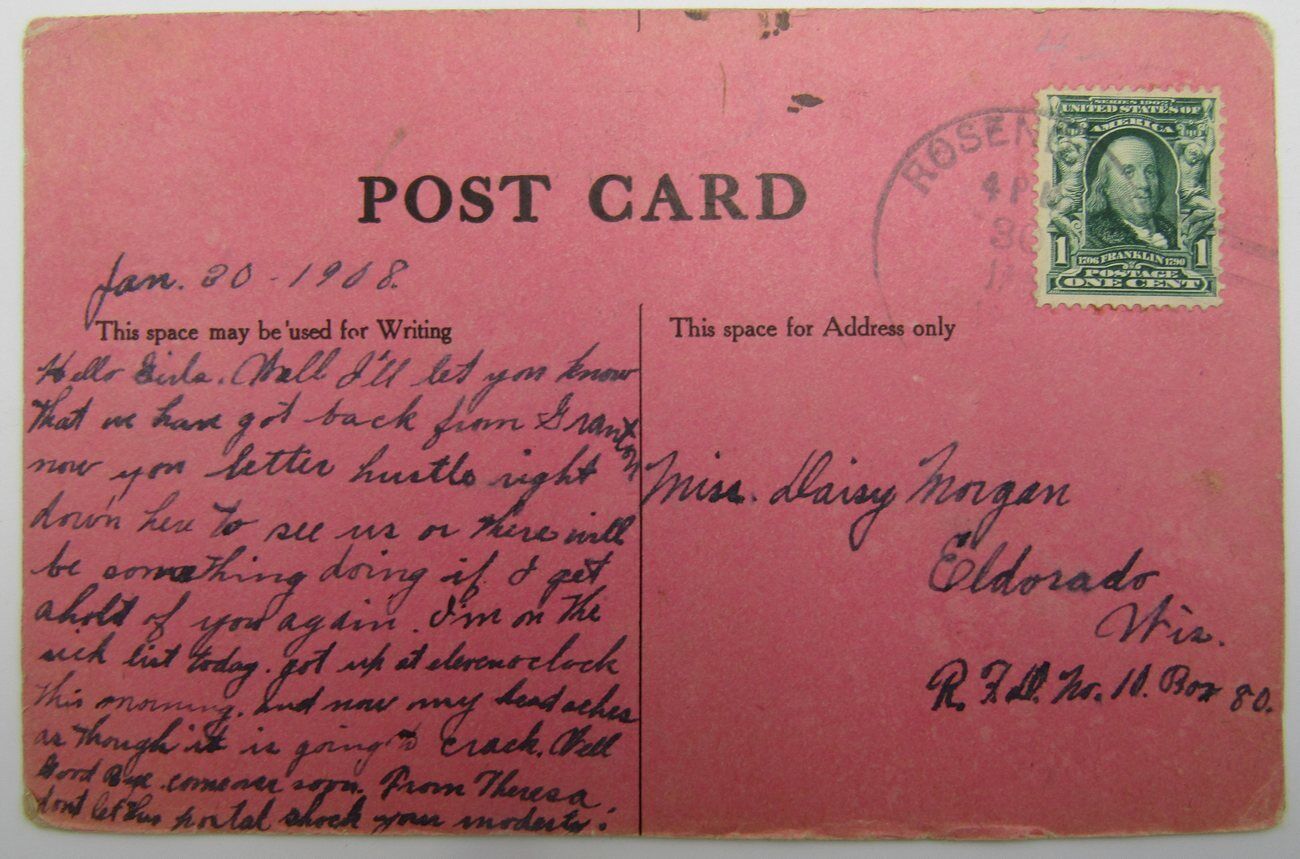 POST CARD
Jan. 30 - 1908.
This space may be used for Writing
Hello Girls. Well I'll let you know
that we have got back from Granton
now you better hustle right
down here to see us or there will
be something doing if I get
ahold of you again. I'm on the
sick list today. got up at eleven o clock
this morning. and now my head aches
as though it is going to crack. Well
Good Bye come over soon. From Theresa.
dont let this postal shock your modesty.
This space for Address only
Miss. Daisy Morgan
Eldorado
Wis.
R. F. D. No. 10. Box 80.
4 PM
30
SERIES 1902
UNITED STATES OF
AMERICA
1 1
1706 FRANKLIN 1790
POSTAGE
ONE CENT